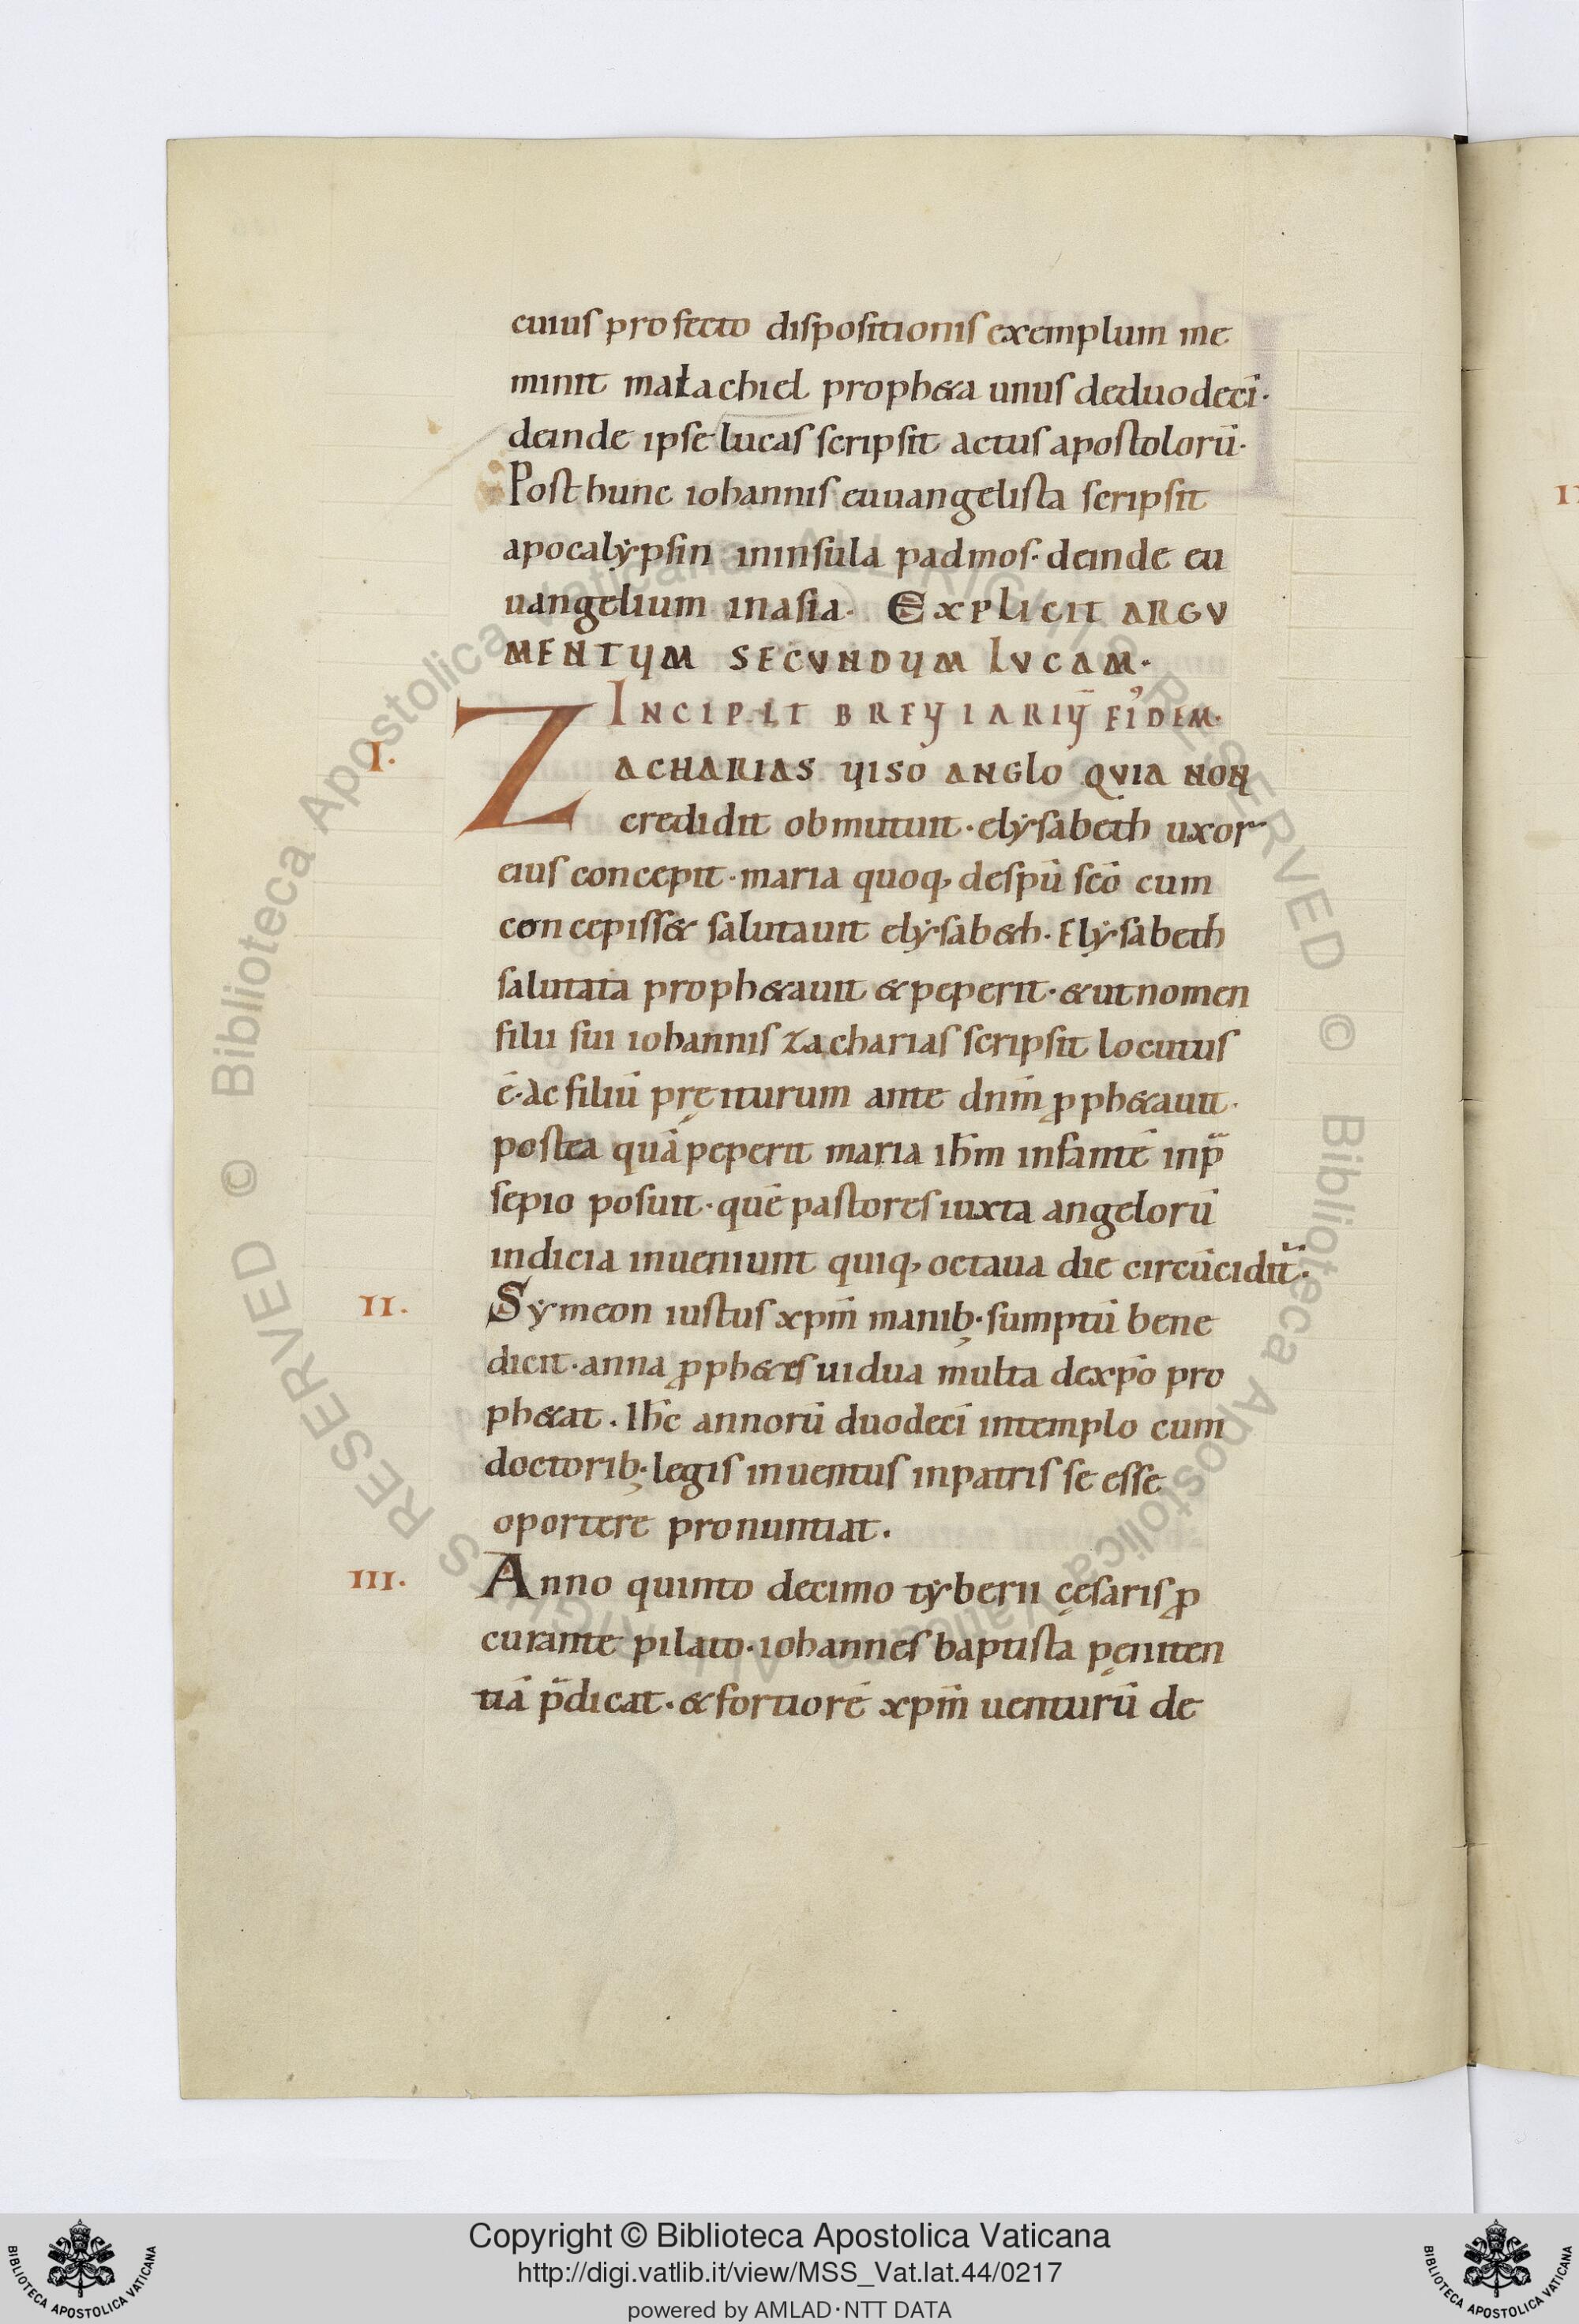 cuius profecto dispositionis exemplum me
minit malachiel proph&a unus deduodecī·
deinde ipse lucas scripsit actus apostolorū·
Post hunc iohannis euuangelista scripsit
apocalẏpsin ininsula padmos· deinde eu
uangelium inasia· EXPLICIT ARGV
MENTUM SECVNDUM LVCAM·
INCIPIT BREUIARIŪ EI'DEM·
I.
ZACHARIAS UISO ANGLO QVIA NON
credidit obmutuit· elẏsabeth uxor
eius concepit· maria quoq, despū scō cum
concepiss& salutauit elẏsab&h· Elẏsabeth
salutata proph&auit & peperit· & ut nomen
filii sui iohannis zacharias scripsit locutus
ē· Ac filiū pręiturum ante dn̄m ꝓph&auit·
postea quā peperit maria ih̄m infantē inp̄
sepio posuit· quē pastores iuxta angelorū
indicia inueniunt quiq, octaua die circūcidit᷑·
II.
Sẏmeon iustus xp̄m manib;· sumptū bene
dicit· anna ꝓph&es uidua multa dexp̄o pro
ph&at. Ih̄c annorū duodecī intemplo cum
doctorib;· legis inuentus inpatris se esse
oportere pronuntiat.
III.
Anno quinto decimo tẏberii cęsaris ꝓ
curante pilato· iohannes baptista pęniten
tiā p̄dicat· & fortiorē xp̄m uenturū de
II
© Biblioteca Apostolica Vaticana ALL RIGHTS RESERVED © Biblioteca Apostolica Vaticana ALL RIGHTS RESERVED
Copyright © Biblioteca Apostolica Vaticana
http://digi.vatlib.it/view/MSS_Vat.lat.44/0217
powered by AMLAD·NTT DATA
BIBLIOTECA APOSTOLICA VATICANA
BIBLIOTECA APOSTOLICA VATICANA